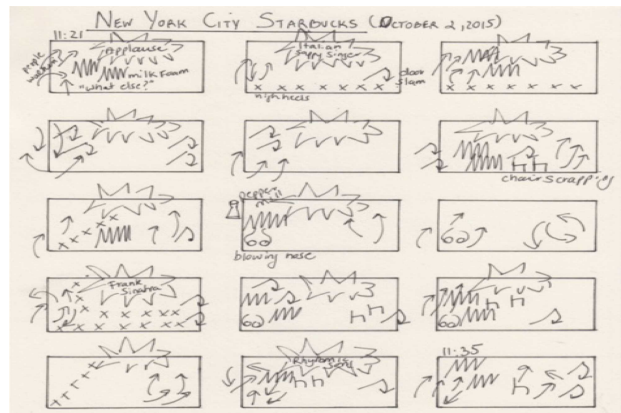 NEW YORK CITY STARBUCKS (OCTOBER 2, 2015)
11:21
people
Applause
milk foam
"what else?"
Italian
Singer
high heels
door
slam
chair scrapping
pepper
mill
blowing nose
Frank
Sinatra
Song
11:35